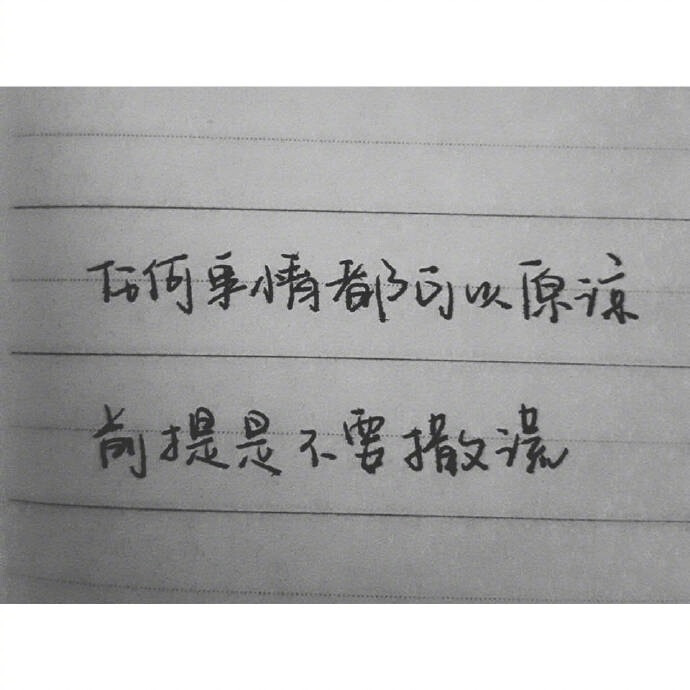 任何事情都可以原谅
前提是不要撒谎